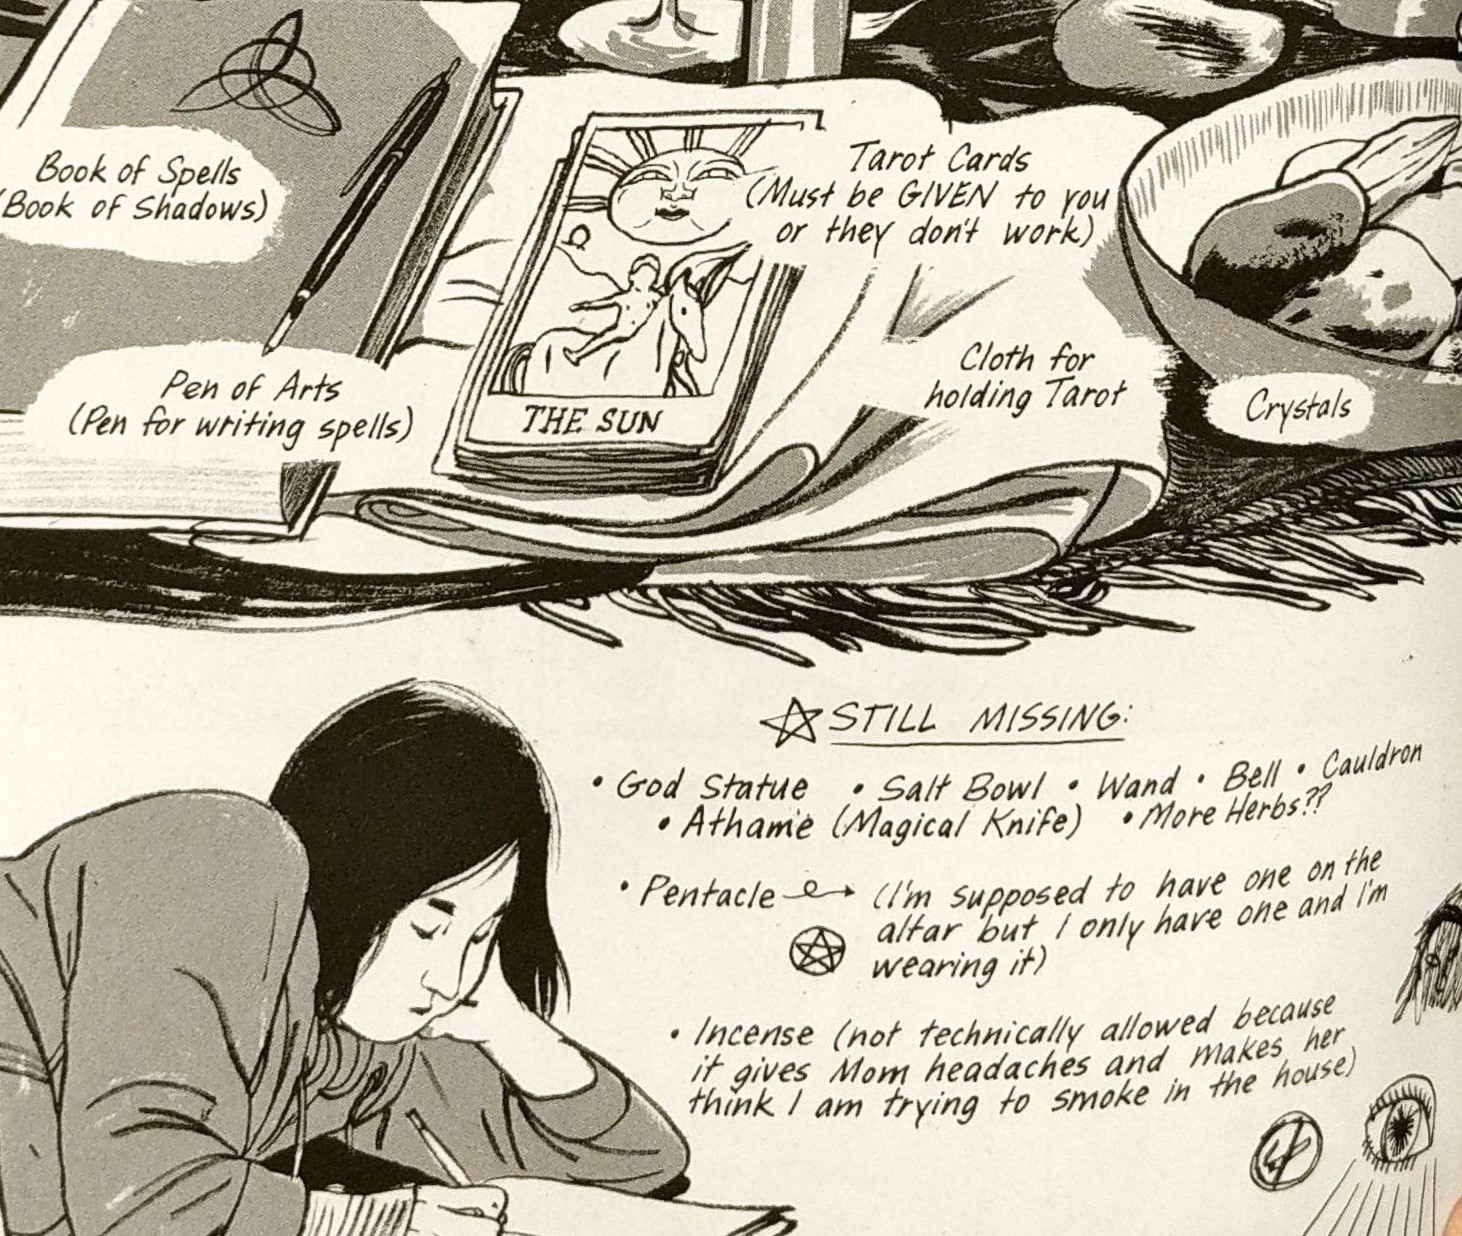 Book of Spells
(Book of Shadows)
Tarot Cards
(Must be GIVEN to you
or they don't work)
Pen of Arts
(Pen for writing spells)
Cloth for
holding Tarot
Crystals
THE SUN
STILL MISSING:
• God Statue • Salt Bowl • Wand • Bell • Cauldron
• Athame (Magical Knife) • More Herbs??
• Pentacle (I'm supposed to have one on the
altar but I only have one and I'm
wearing it)
• Incense (not technically allowed because
it gives Mom headaches and makes her
think I am trying to smoke in the house)